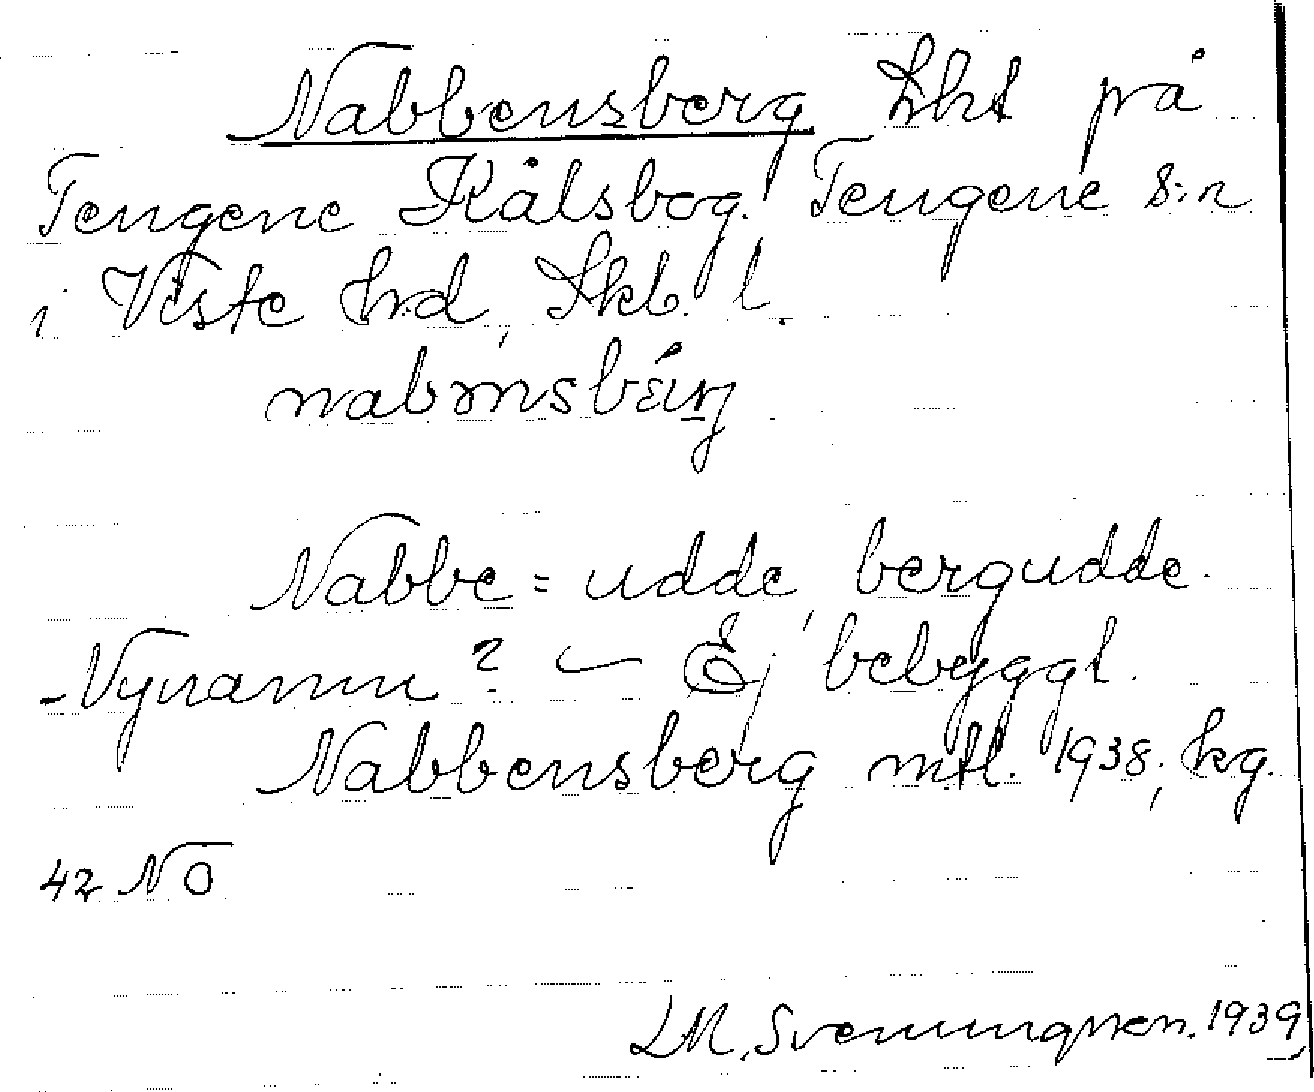 Nabbensberg Lht på
Tengene Kålsbog. Tengene s:n
i Viste hrd, Skb. l.
Nabbe = udde, bergudde.
-Nynamn? — Ej bebyggt.
Nabbensberg mtl. 1938; kg.
42 NO
LM. Svenungsson. 1939,